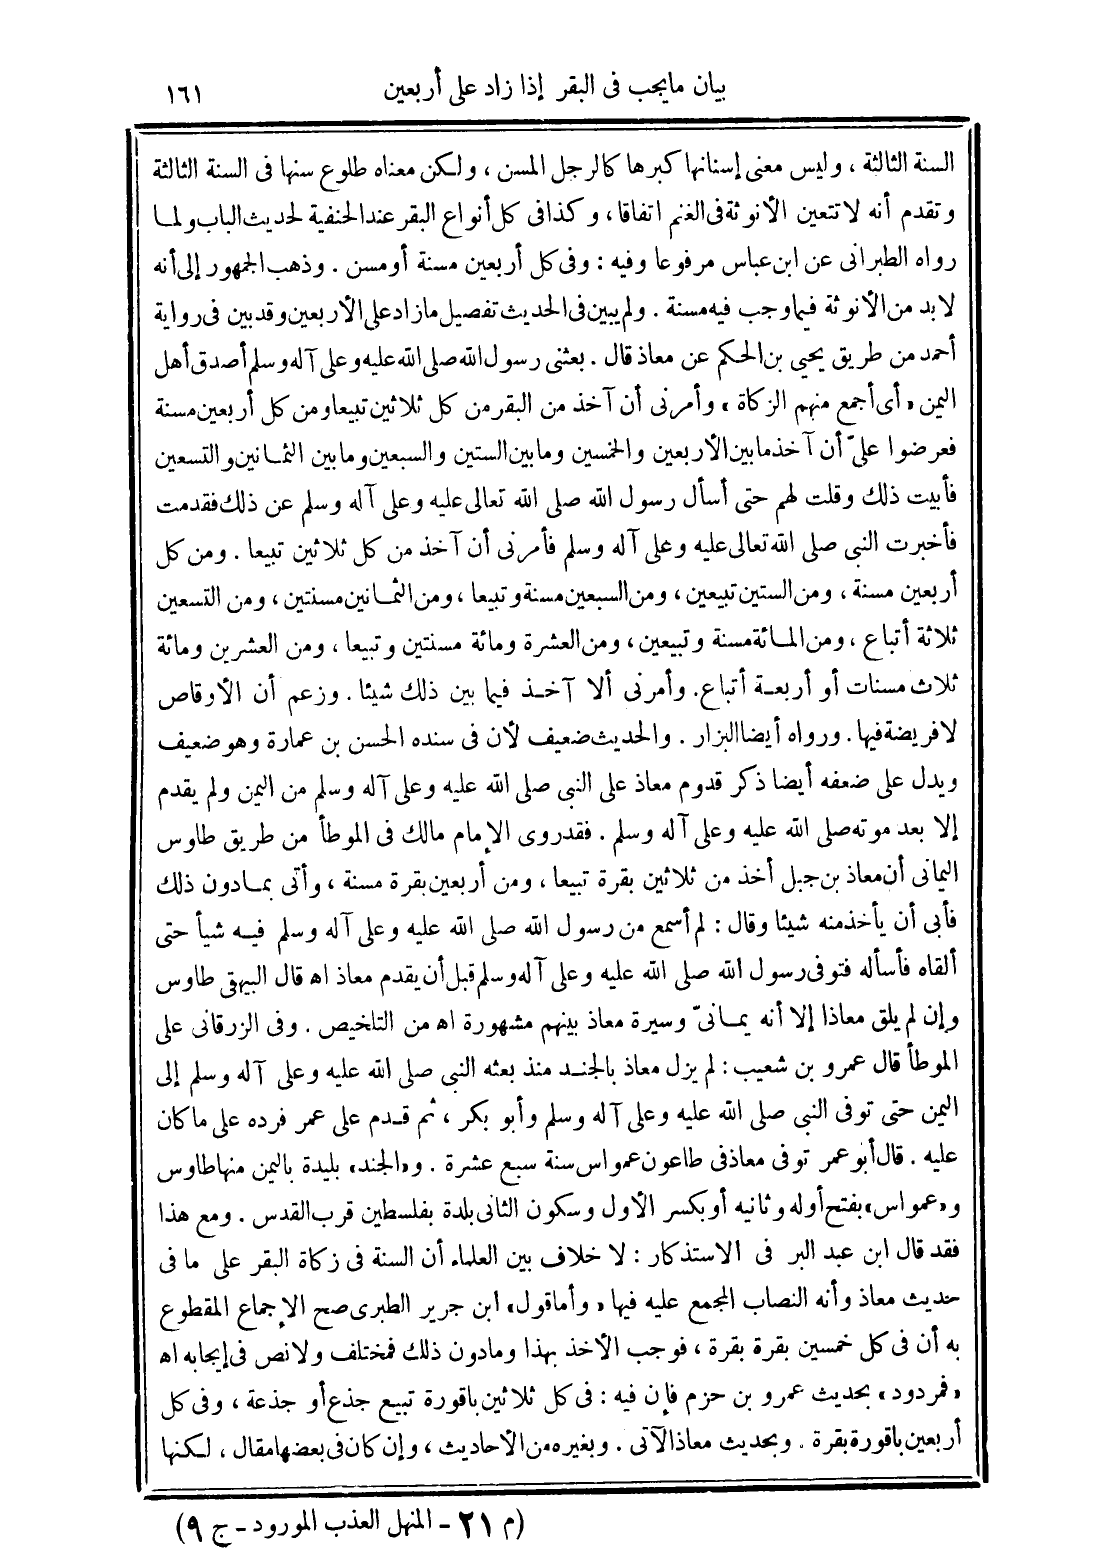 بيان مايجب فى البقر إذا زاد على أربعين ١٦١
السنة الثالثة ، وليس معنى إسنانها كبرها كالرجل المسن ، ولكن معناه طلوع سنها فى السنة الثالثة
وتقدم أنه لا تتعين الأنوثة فى الغنم اتفاقا ، وكذا فى كل أنواع البقر عند الحنفية لحديث الباب ولما
رواه الطبرانى عن ابن عباس مرفوعا وفيه : وفى كل أربعين مسنة أو مسن . وذهب الجمهور إلى أنه
لابد من الأنوثة فيما وجب فيه مسنة . ولم يبين فى الحديث تفصيل مازاد على الأربعين وقد بين فى رواية
أحمد من طريق يحيى بن الحكم عن معاذ قال . بعثنى رسول الله صلى الله عليه وعلى آله وسلم أصدق أهل
اليمن « أى أجمع منهم الزكاة » وأمرنى أن آخذ من البقر من كل ثلاثين تبيعا ومن كل أربعين مسنة
فعرضوا علىّ أن آخذ مابين الأربعين والخمسين ومابين الستين والسبعين ومابين الثمانين والتسعين
فأبيت ذلك وقلت لهم حتى أسأل رسول الله صلى الله تعالى عليه وعلى آله وسلم عن ذلك فقدمت
فأخبرت النبى صلى الله تعالى عليه وعلى آله وسلم فأمرنى أن آخذ من كل ثلاثين تبيعا . ومن كل
أربعين مسنة ، ومن الستين تبيعين ، ومن السبعين مسنة وتبيعا ، ومن الثمانين مسنتين ، ومن التسعين
ثلاثة أتباع ، ومن المائة مسنة وتبيعين ، ومن العشرة ومائة مسنتين وتبيعا ، ومن العشرين ومائة
ثلاث مسنات أو أربعة أتباع. وأمرنى ألا آخذ فيما بين ذلك شيئا . وزعم أن الأوقاص
لا فريضة فيها . ورواه أيضا البزار . والحديث ضعيف لأن فى سنده الحسن بن عمارة وهو ضعيف
ويدل على ضعفه أيضا ذكر قدوم معاذ على النبى صلى الله عليه وعلى آله وسلم من اليمن ولم يقدم
إلا بعد موته صلى الله عليه وعلى آله وسلم . فقد روى الإمام مالك فى الموطأ من طريق طاوس
اليمانى أن معاذ بن جبل أخذ من ثلاثين بقرة تبيعا ، ومن أربعين بقرة مسنة ، وأتى بمادون ذلك
فأبى أن يأخذ منه شيئا وقال : لم أسمع من رسول الله صلى الله عليه وعلى آله وسلم فيه شيأ حتى
ألقاه فأسأله فتوفى رسول الله صلى الله عليه وعلى آله وسلم قبل أن يقدم معاذ اه قال البيهقى طاوس
وإن لم يلق معاذا إلا أنه يمانىّ وسيرة معاذ بينهم مشهورة اه من التلخيص . وفى الزرقانى على
الموطأ قال عمرو بن شعيب : لم يزل معاذ بالجند منذ بعثه النبى صلى الله عليه وعلى آله وسلم إلى
اليمن حتى توفى النبى صلى الله عليه وعلى آله وسلم وأبو بكر ، ثم قدم على عمر فرده على ما كان
عليه . قال أبو عمر توفى معاذ فى طاعون عمواس سنة سبع عشرة . و«الجند» بليدة باليمن منها طاوس
و«عمواس» بفتح أوله وثانيه أو بكسر الأول وسكون الثانى بلدة بفلسطين قرب القدس . ومع هذا
فقد قال ابن عبد البر فى الاستذكار : لا خلاف بين العلماء أن السنة فى زكاة البقر على ما فى
حديث معاذ وأنه النصاب المجمع عليه فيها « وأما قول» ابن جرير الطبرى صح الإجماع المقطوع
به أن فى كل خمسين بقرة بقرة ، فوجب الأخذ بهذا ومادون ذلك فمختلف ولا نص فى إيجابه اه
«فمردود» بحديث عمرو بن حزم فإن فيه : فى كل ثلاثين باقورة تبيع جذع أو جذعة ، وفى كل
أربعين باقورة بقرة . وبحديث معاذ الآتى . وبغيره من الأحاديث ، وإن كان فى بعضها مقال ، لكنها
(م ٢١ - المنهل العذب المورود - ج ٩)